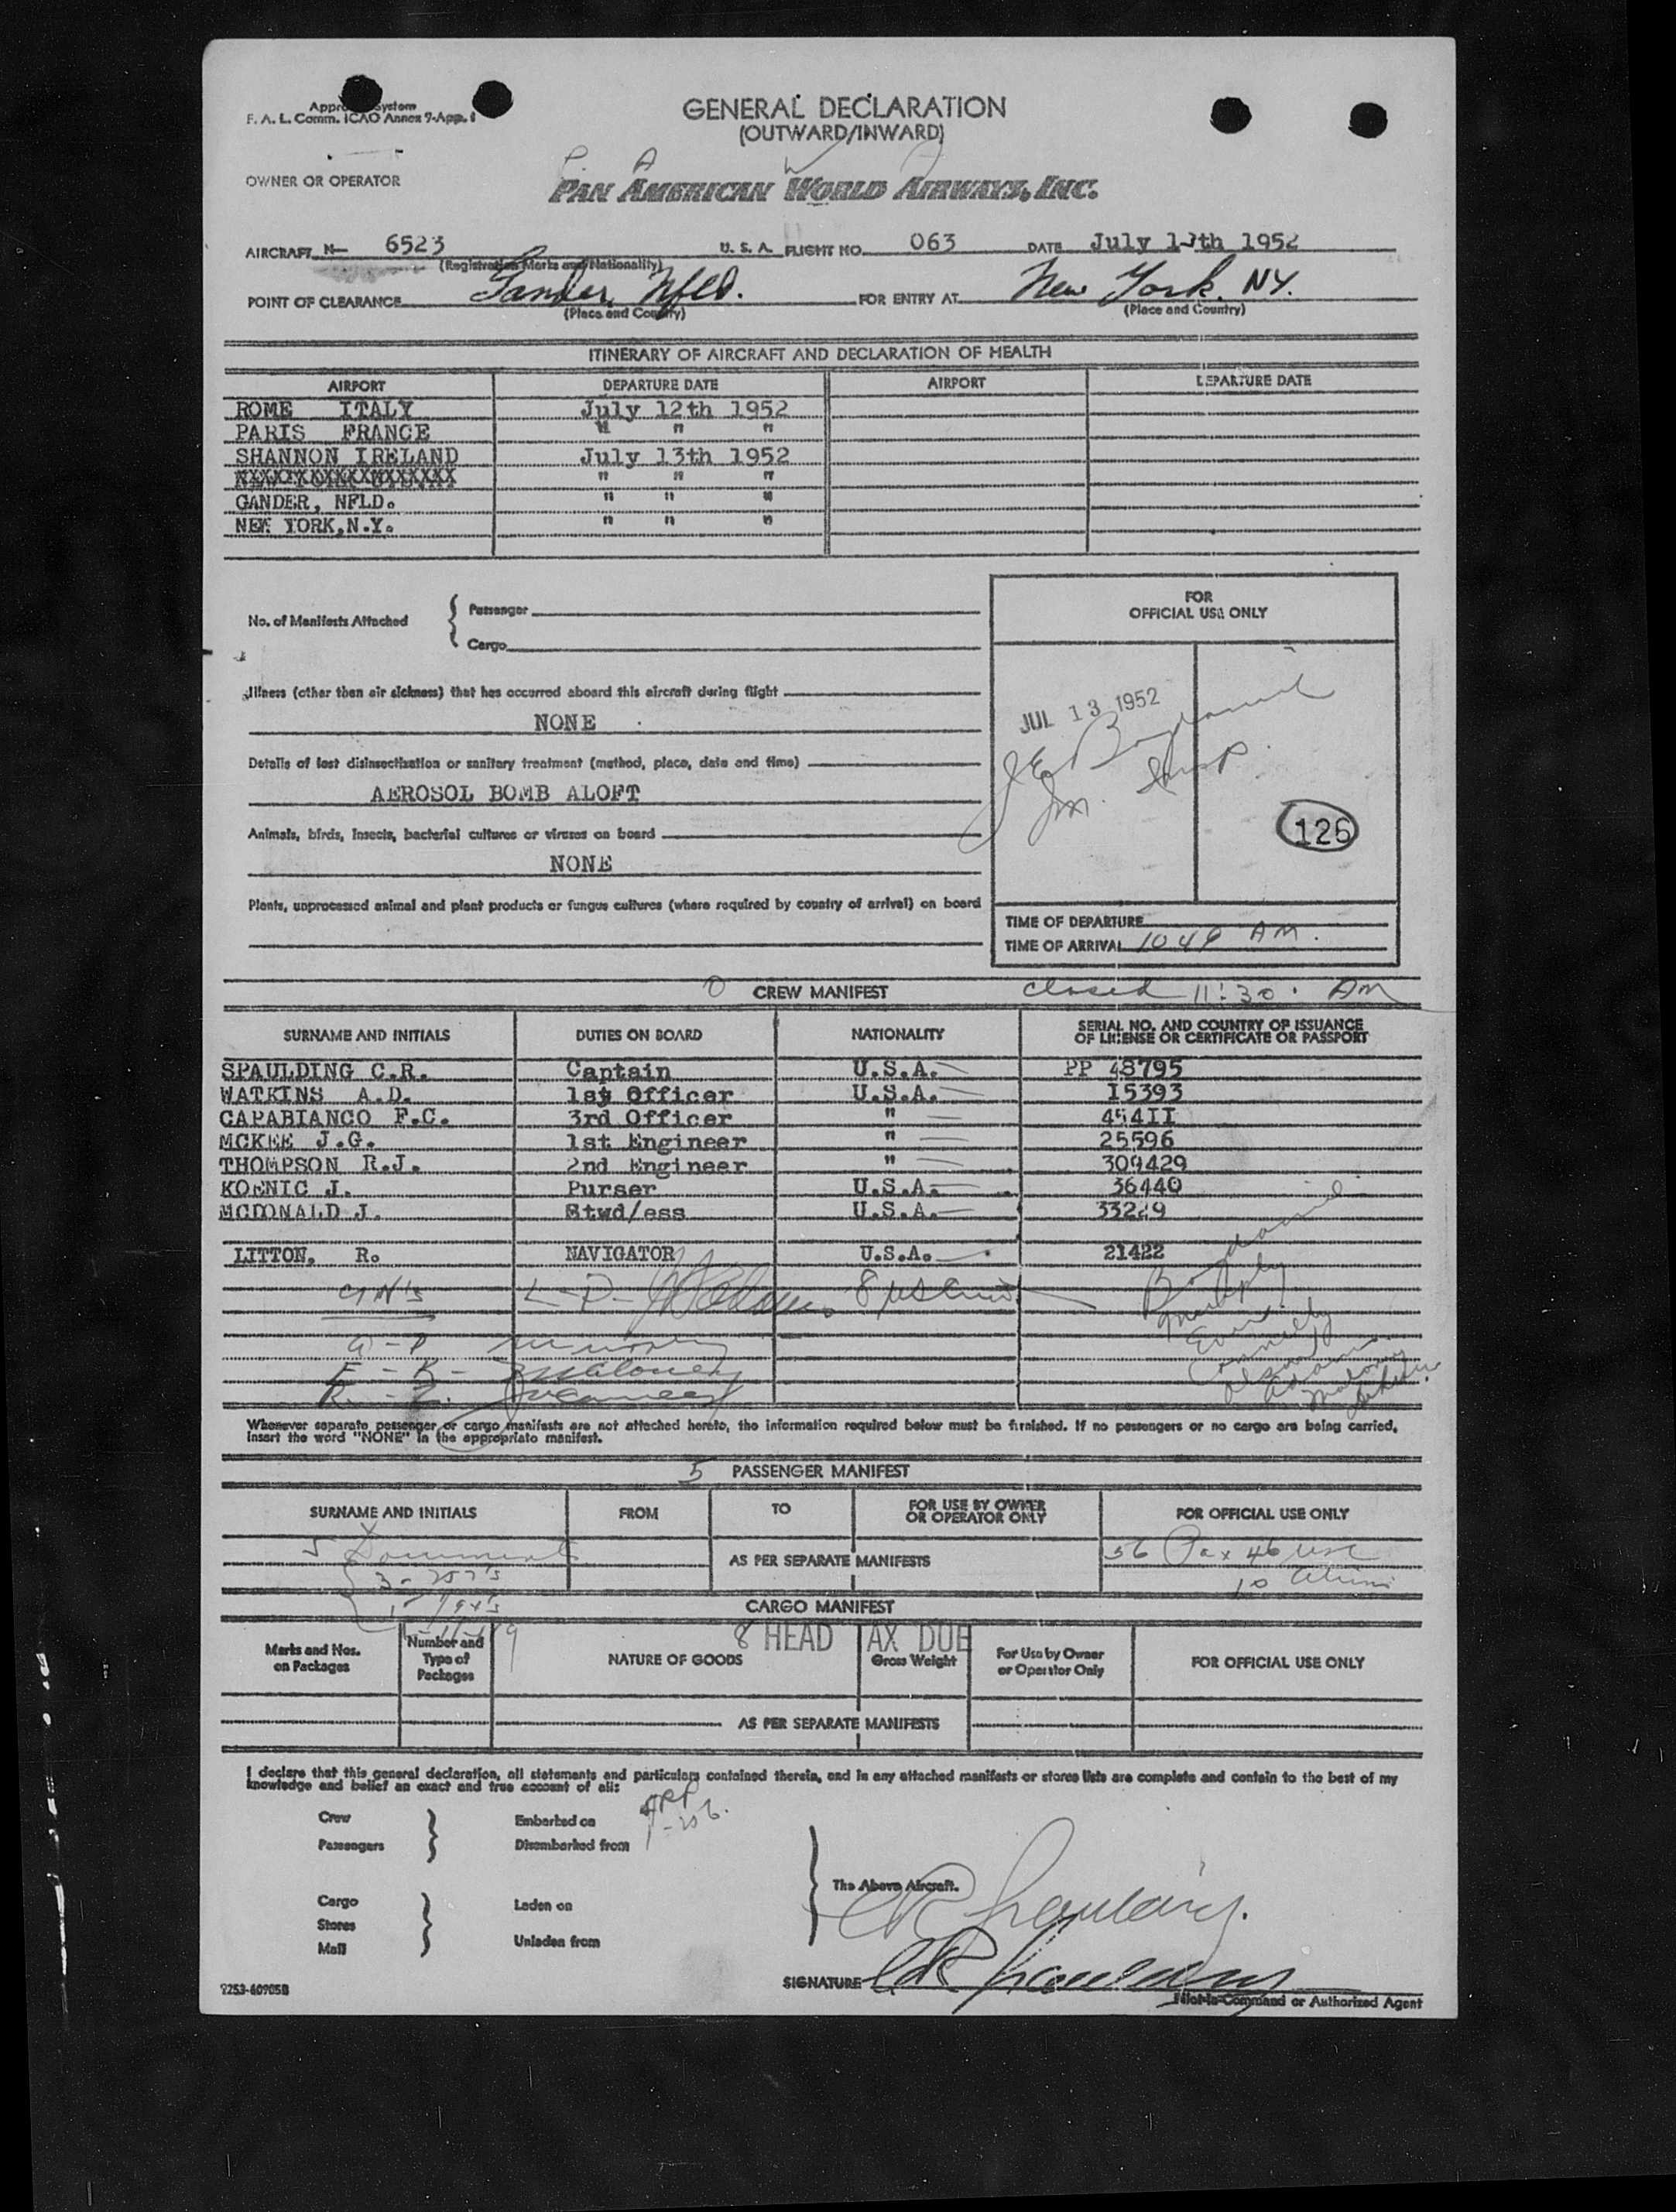 Appro System
F. A. L. Comm. ICAO Annex 9-App. 1
GENERAL DECLARATION
(OUTWARD/INWARD)
P A W A
OWNER OR OPERATOR
PAN AMERICAN WORLD AIRWAYS, INC.
AIRCRAFT N- 6523 U. S. A. FLIGHT NO. 063 DATE July 13th 1952
(Registration Marks and Nationality)
POINT OF CLEARANCE Gander, Nfld. FOR ENTRY AT New York. NY.
(Place and Country) (Place and Country)
ITINERARY OF AIRCRAFT AND DECLARATION OF HEALTH
AIRPORT DEPARTURE DATE AIRPORT DEPARTURE DATE
ROME ITALY July 12th 1952
PARIS FRANCE " " "
SHANNON IRELAND July 13th 1952
" " "
GANDER, NFLD. " " "
NEW YORK, N.Y. " " "
FOR
OFFICIAL USE ONLY
No. of Manifests Attached { Passenger
Cargo
Illness (other than air sickness) that has occurred aboard this aircraft during flight
JUL 13 1952
NONE
Details of last disinsectization or sanitary treatment (method, place, date and time)
AEROSOL BOMB ALOFT
126
Animals, birds, insects, bacterial cultures or viruses on board
NONE
Plants, unprocessed animal and plant products or fungus cultures (where required by country of arrival) on board
TIME OF DEPARTURE
TIME OF ARRIVAL 1049 AM.
0 CREW MANIFEST closed 11:30 AM
SURNAME AND INITIALS DUTIES ON BOARD NATIONALITY SERIAL NO. AND COUNTRY OF ISSUANCE
OF LICENSE OR CERTIFICATE OR PASSPORT
SPAULDING C.R. Captain U.S.A. PP 48795
WATKINS A.D. 1st Officer U.S.A. I5393
CAPABIANCO F.C. 3rd Officer " 454II
MCKEE J.G. 1st Engineer " 25596
THOMPSON R.J. 2nd Engineer " 309429
KOENIC J. Purser U.S.A. 36440
MCDONALD J. Stwd/ess U.S.A. 33229
LITTON, R. NAVIGATOR U.S.A. 21422
Maloney
Whenever separate passenger or cargo manifests are not attached hereto, the information required below must be furnished. If no passengers or no cargo are being carried,
insert the word "NONE" in the appropriate manifest.
5 PASSENGER MANIFEST
SURNAME AND INITIALS FROM TO FOR USE BY OWNER
OR OPERATOR ONLY FOR OFFICIAL USE ONLY
5 Documents AS PER SEPARATE MANIFESTS 56 Pax 46 usc
3-257's 10 aliens
CARGO MANIFEST
8 HEAD TAX DUE
Marks and Nos.
on Packages Number and
Type of
Packages NATURE OF GOODS Gross Weight For Use by Owner
or Operator Only FOR OFFICIAL USE ONLY
AS PER SEPARATE MANIFESTS
I declare that this general declaration, all statements and particulars contained therein, and in any attached manifests or stores lists are complete and contain to the best of my
knowledge and belief an exact and true account of all:
Crew
Passengers } Embarked on
Disembarked from
Cargo
Stores
Mail } Laden on
Unladen from
} The Above Aircraft.
CR Spaulding.
SIGNATURE CR Spaulding
Pilot-in-Command or Authorized Agent
9253-60905B